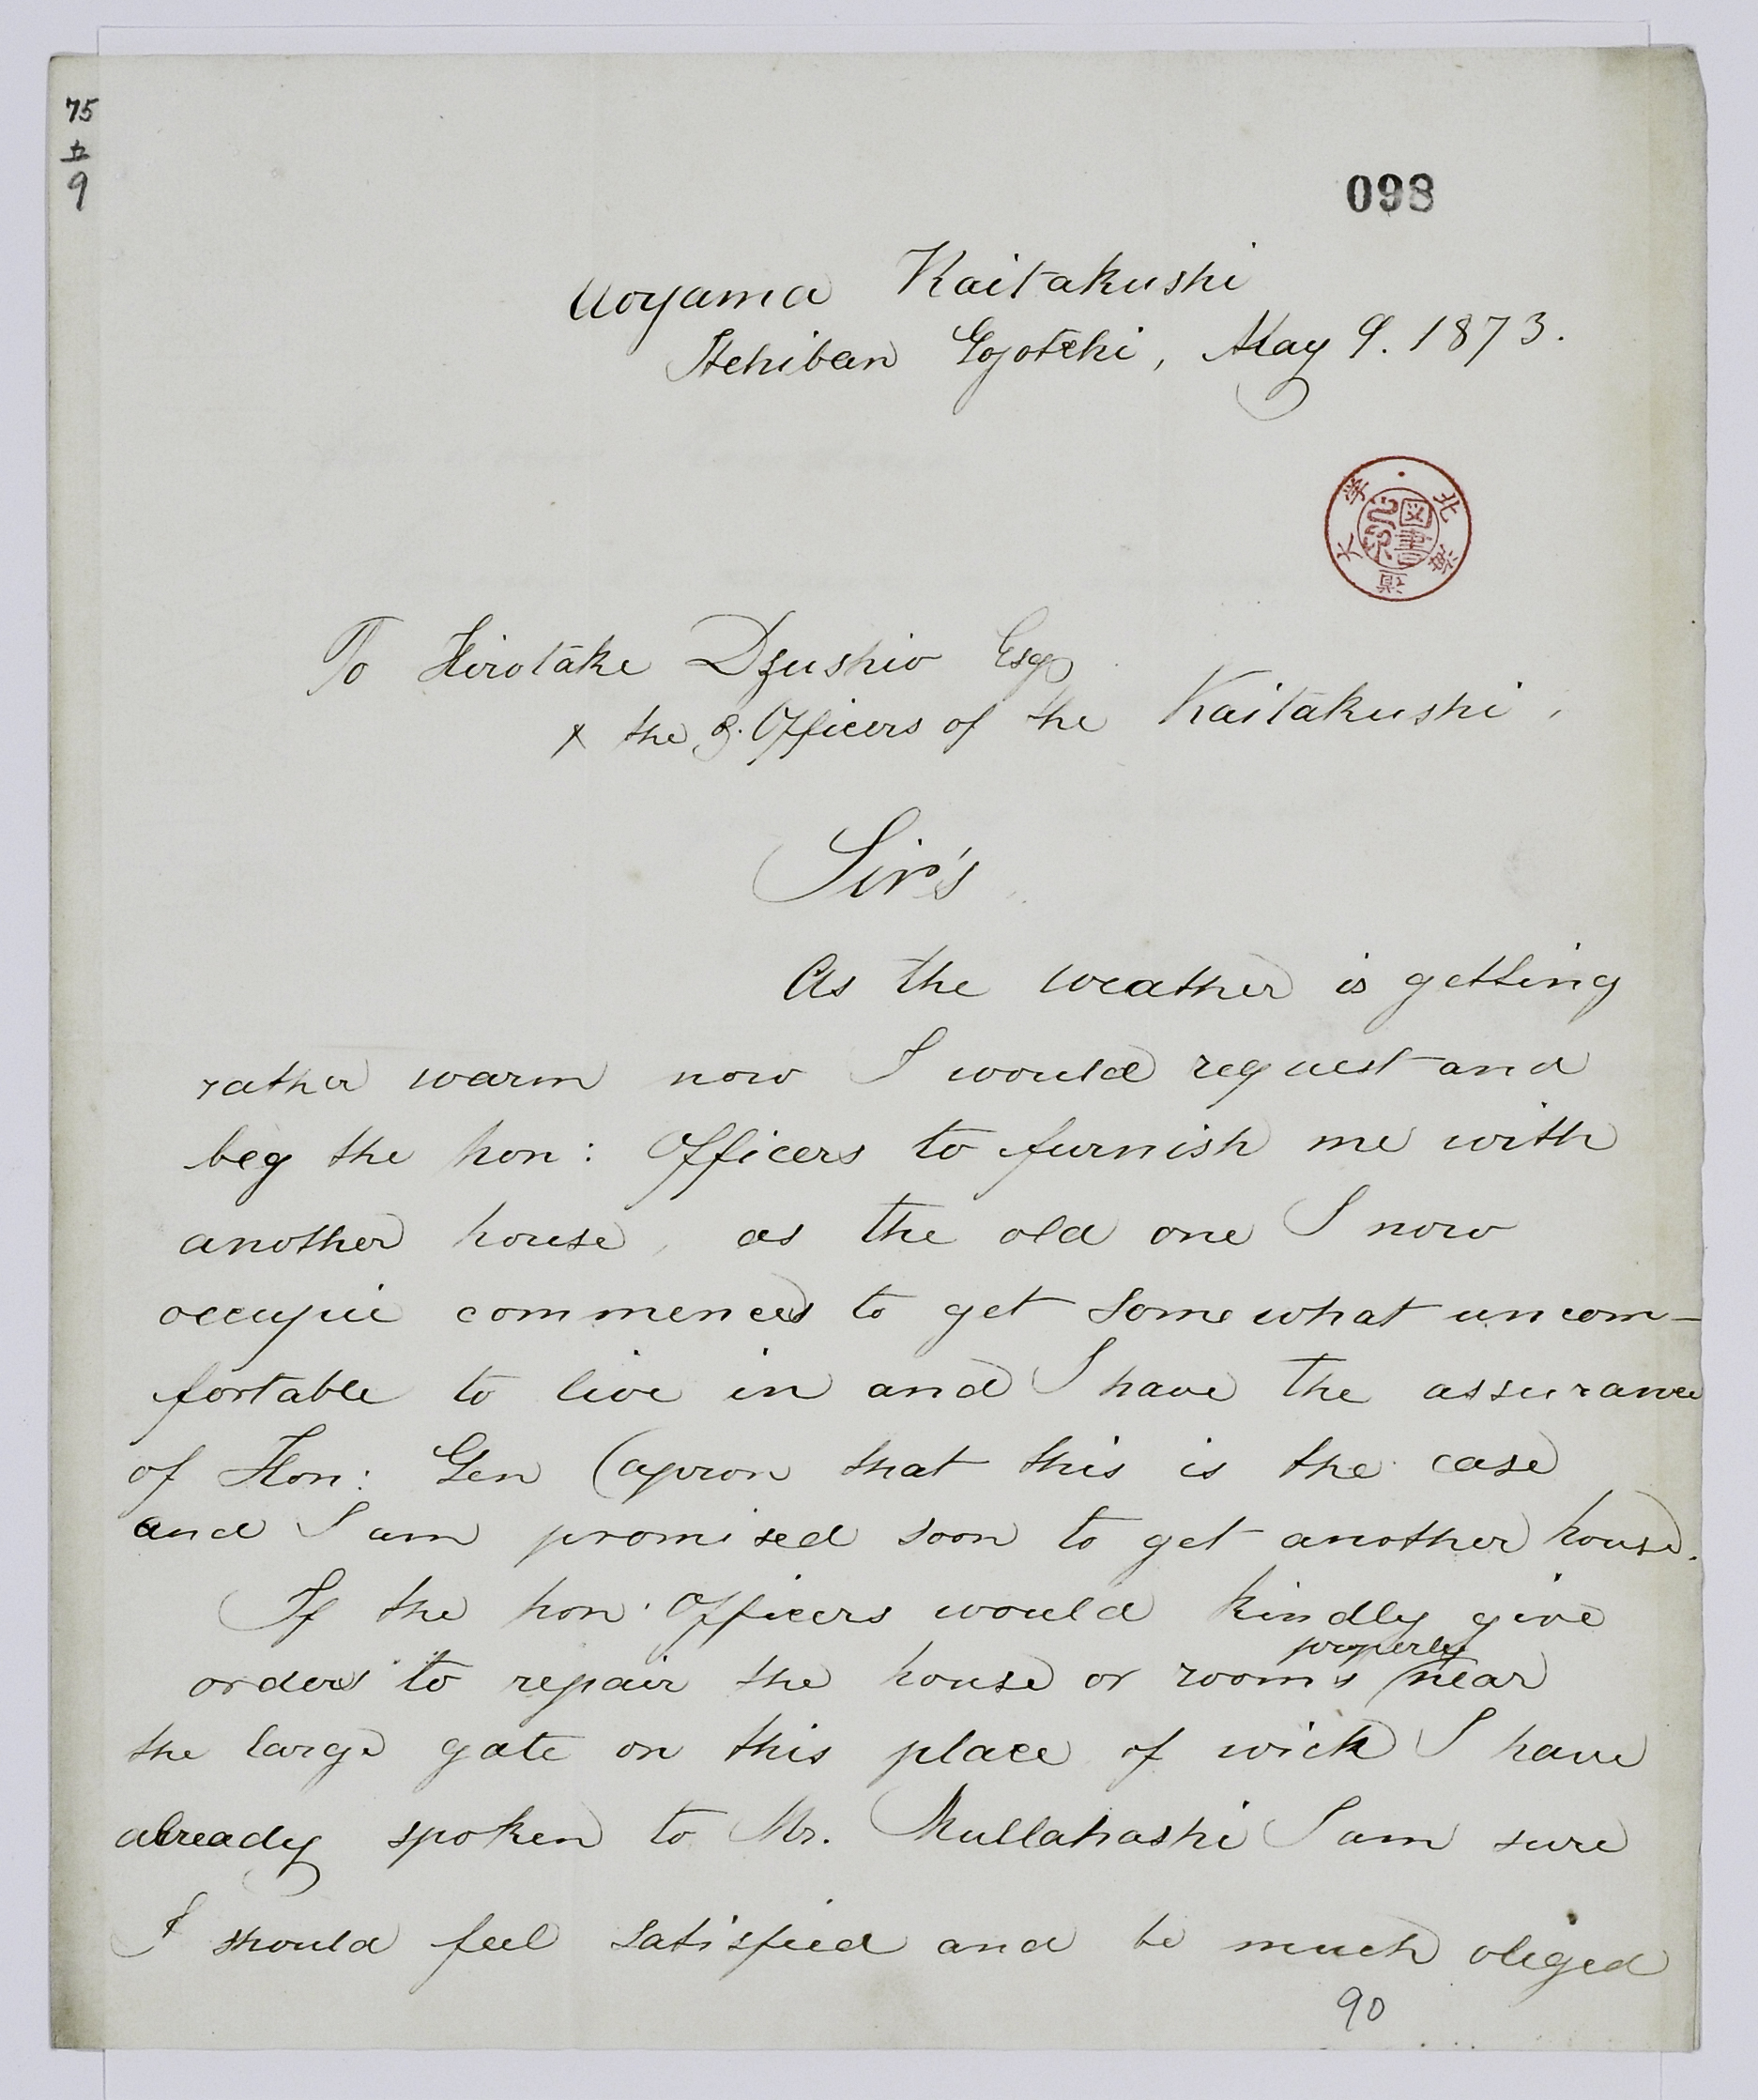 75
五
9
098
Aoyama Kaitakushi
Itchiban Gyotchi, May 9. 1873.
北海道大学
図書
To Hirotake Dzushio Esq
& the g. Officers of the Kaitakushi,
Sir's
As the weather is getting
rather warm now I would request and
beg the hon: Officers to furnish me with
another house, as the old one I now
occupie commences to get somewhat uncom-
fortable to live in and I have the assurance
of Hon: Gen Capron that this is the case
and I am promised soon to get another house.
If the hon: Officers would kindly give
properly
orders to repair the house or room's near
the large gate on this place of wich I have
already spoken to Mr. Mullahashi I am sure
I should feel satisfied and be much oliged
90